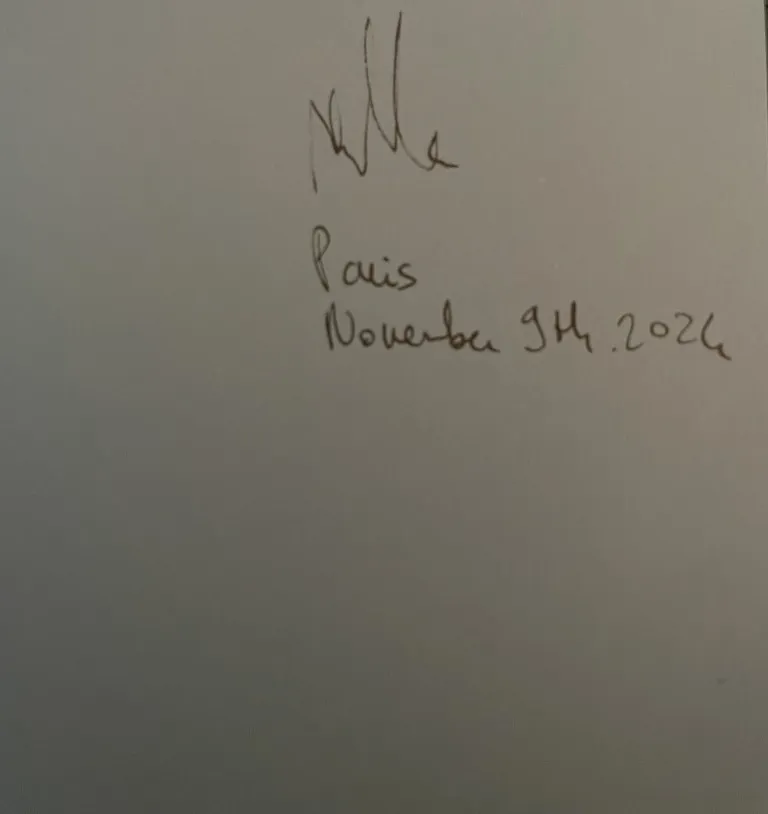 Paris
November 9th.2024